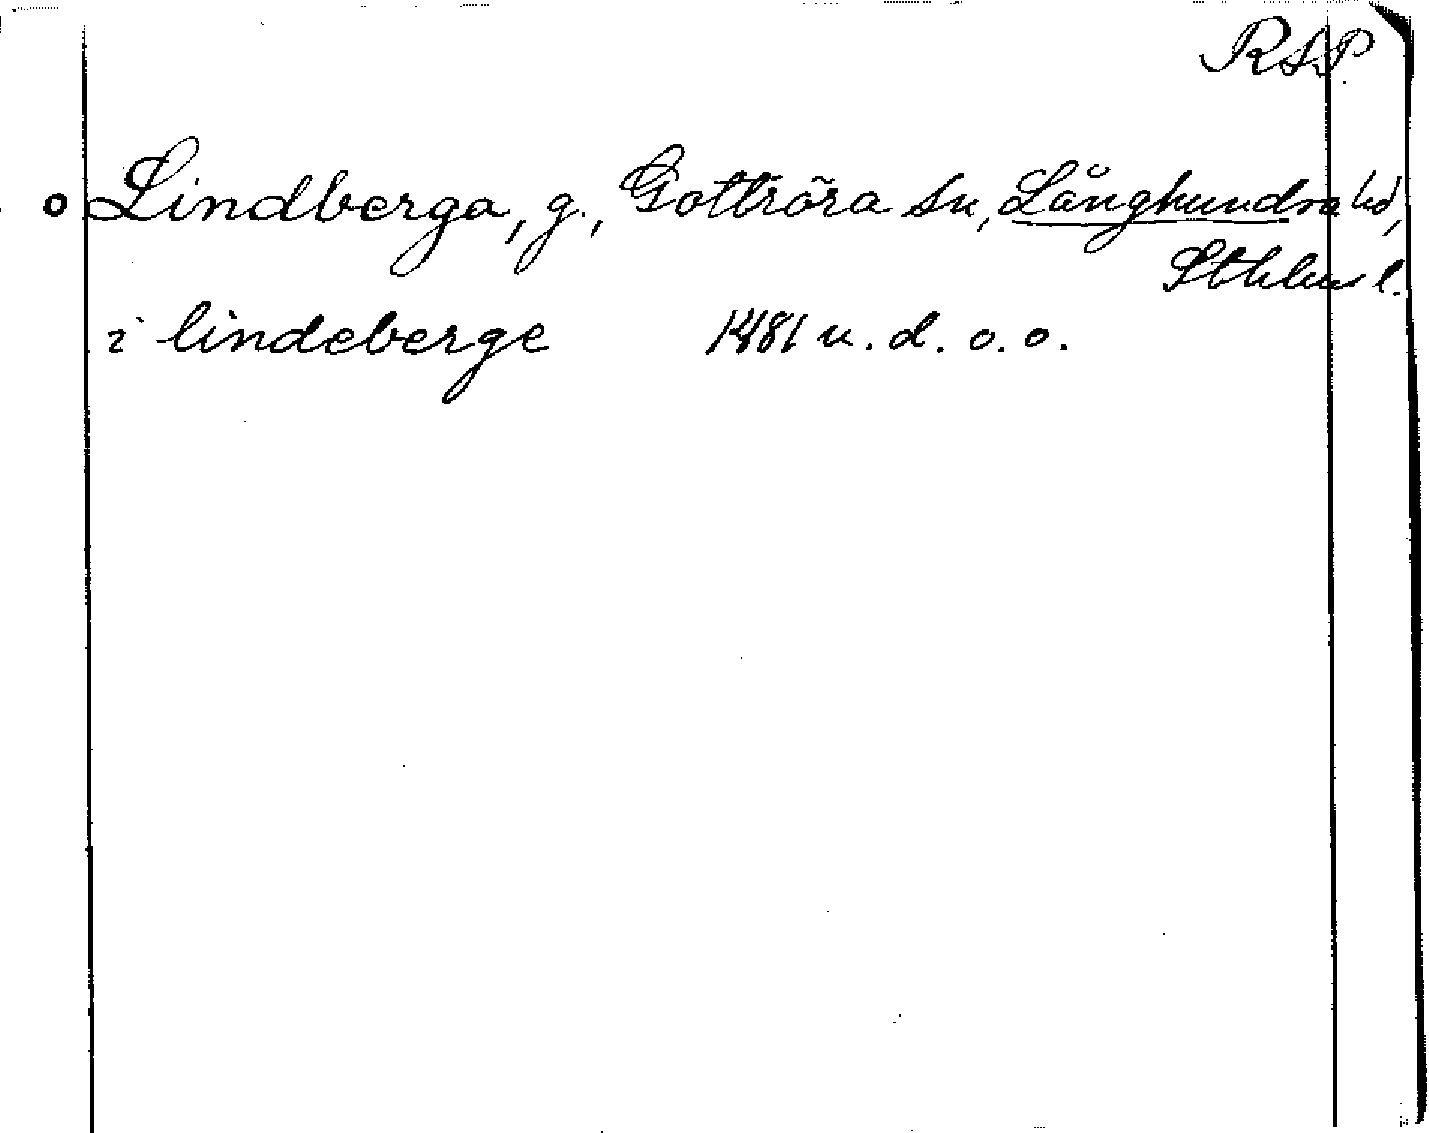 RAP.
o Lindberga, g., Gottröra sn, Långhundra hd,
Sthlms l.
i lindeberge 1481 u. d. o. o.